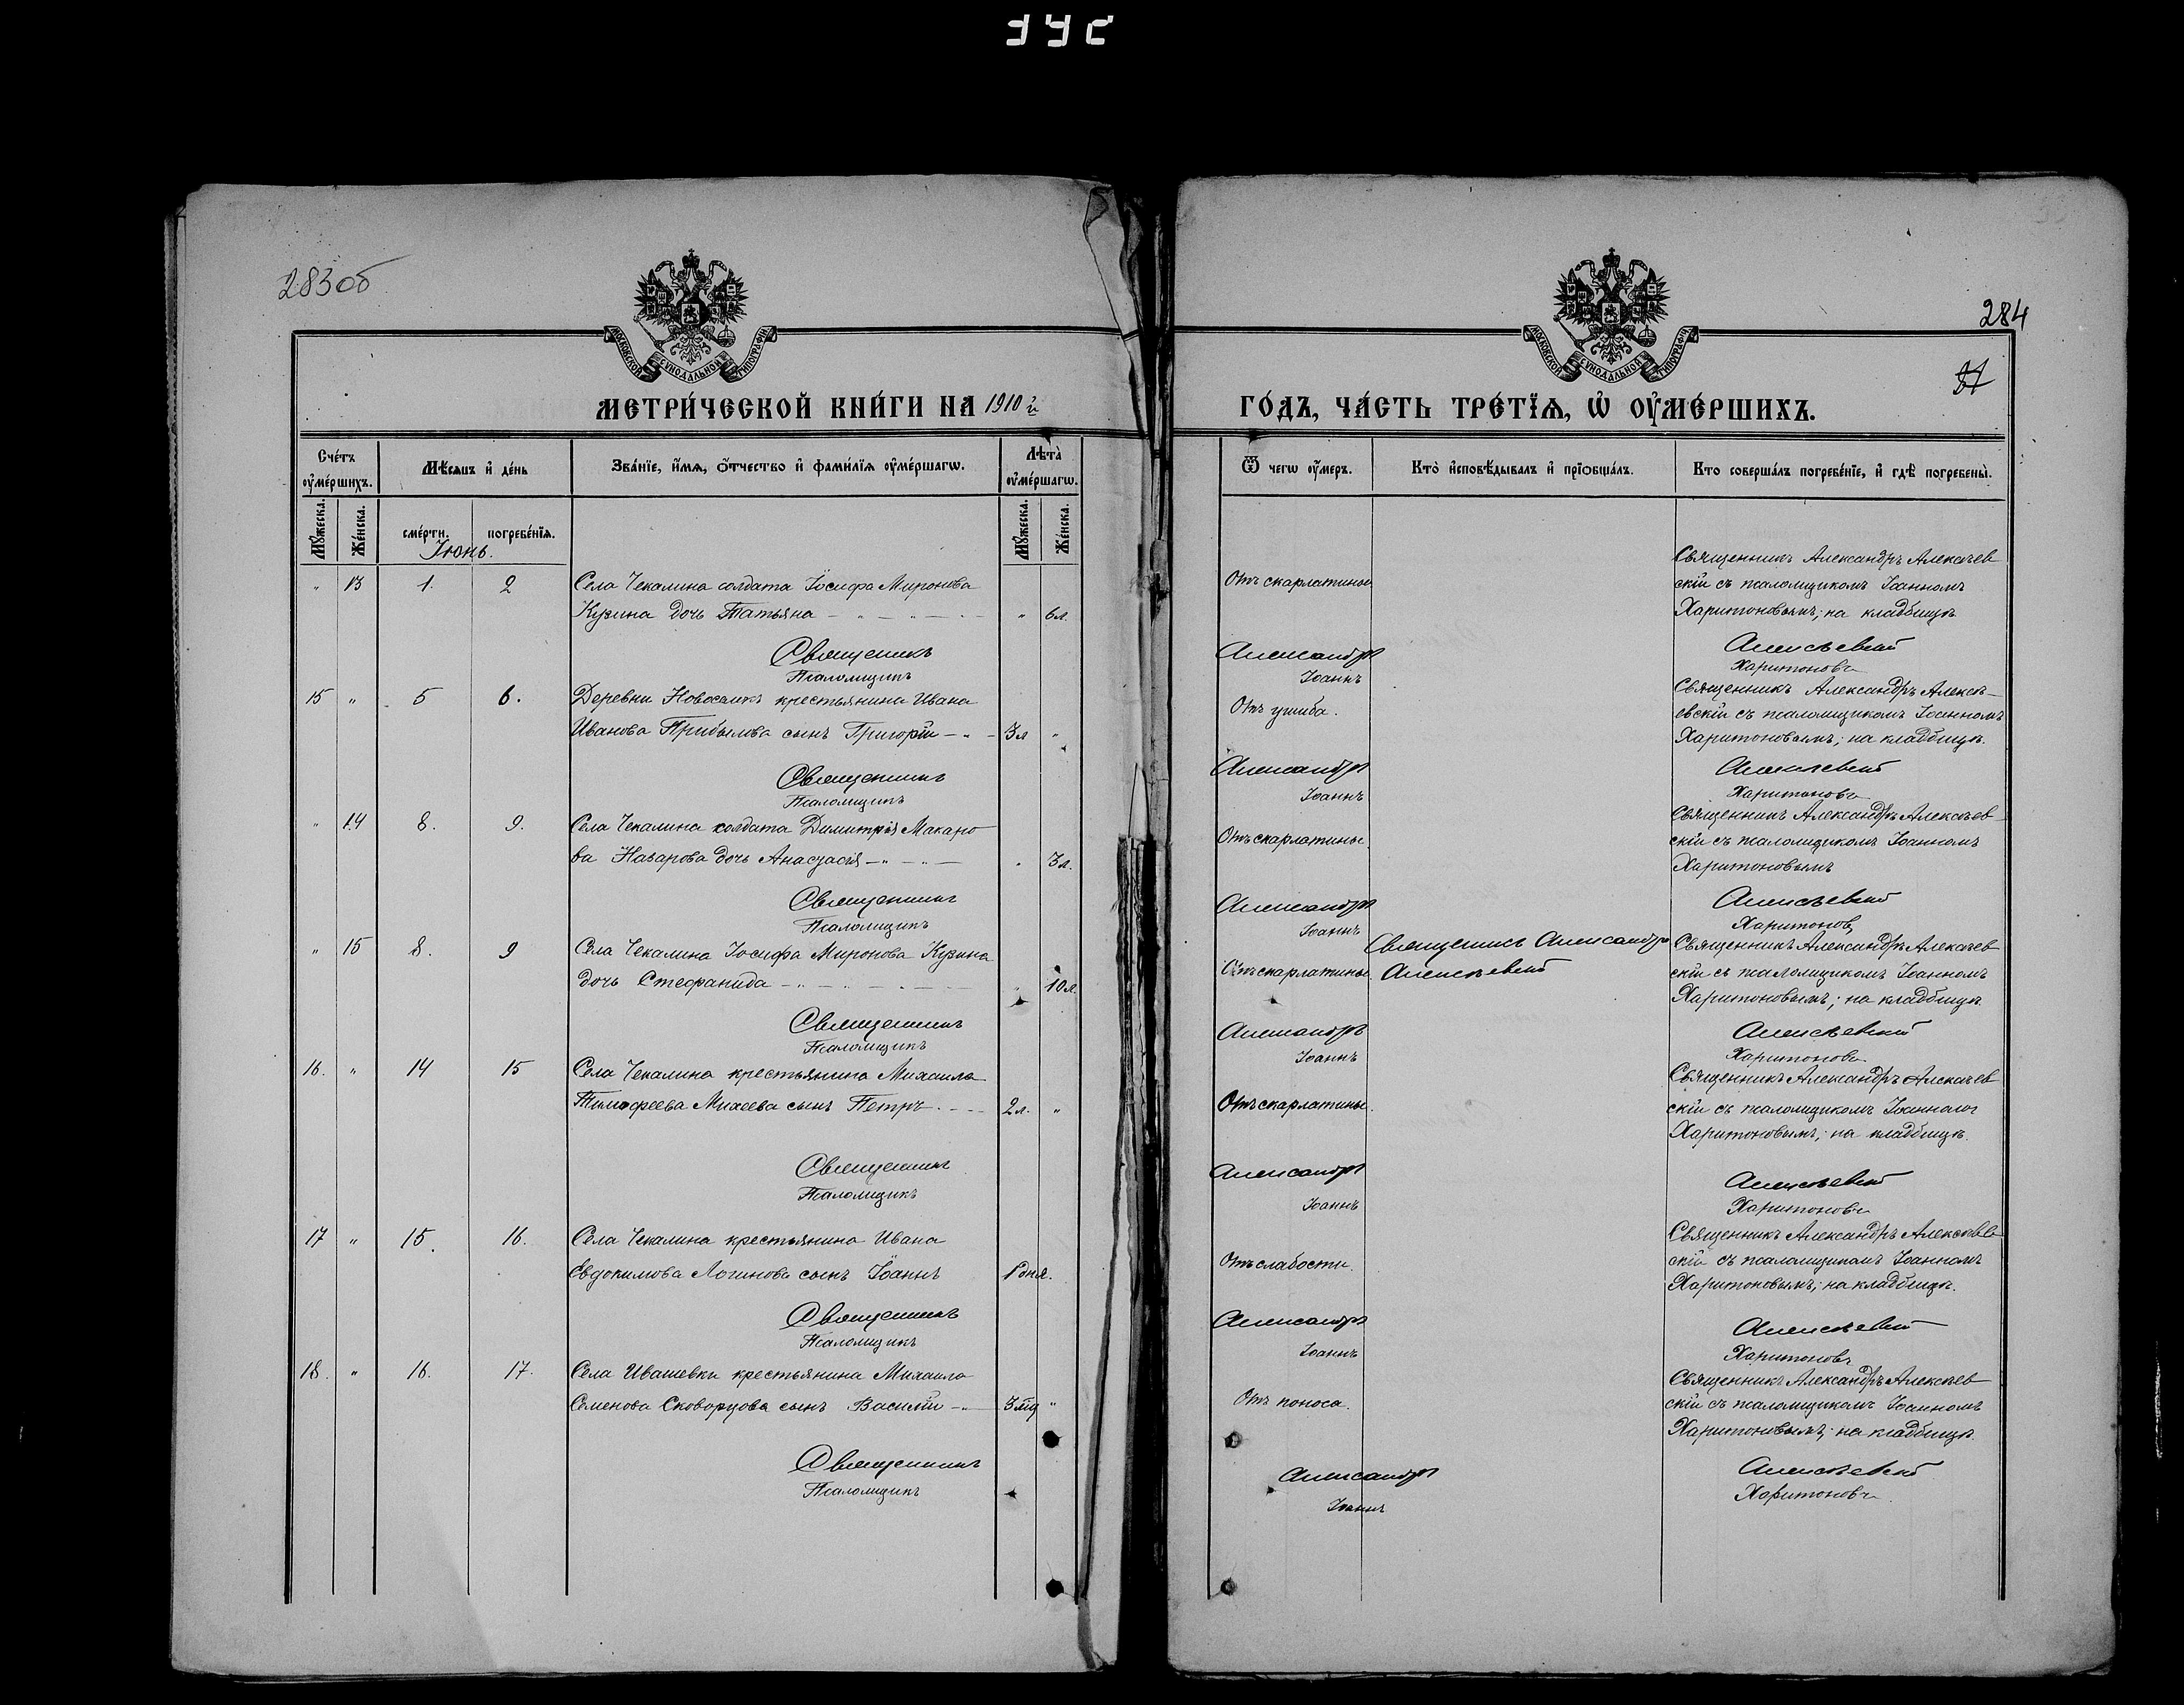 392
283об
284
МОСКОВСКОЙ СѴНОДАЛЬНОЙ ТИПОГРАФІИ
МОСКОВСКОЙ СѴНОДАЛЬНОЙ ТИПОГРАФІИ
МЕТРИ́ЧЕСКОЙ КНИ́ГИ НА 1910й
ГО́ДЪ, ЧА́СТЬ ТРЕ́ТЇѦ, Ѡ҆ ОУ҆МЕ́РШИХЪ.
Сче́тъ оу҆ме́ршихъ.
Мѣсѧцъ и҆ де́нь
Зва́нїе, и҆́мѧ, ѻ҆́тчество и҆ фами́лїѧ оу҆ме́ршагѡ.
Лѣта̀ оу҆ме́ршагѡ.
Ѿ чегѡ оу҆́меръ.
Кто̀ и҆сповѣ́дывалъ и҆ прїѡбща́лъ.
Кто соверша́лъ погребе́нїе, и҆ гдѣ̀ погребены̀.
Мꙋ́жеска.
Же́нска.
сме́рти.
погребе́нїѧ.
Мꙋ́жеска.
Же́нска.
Іюнь.
" 13 1. 2 Села Чекалина солдата Іосифа Миронова
Кузина дочь Татьяна " 6 л.
Отъ скарлатины
Священникъ Александръ Алексѣев
скій съ псаломщикомъ Іоанномъ
Харитоновымъ; на кладбищѣ.
Священникъ Александръ Алексѣевскій
Псаломщикъ Іоаннъ Харитоновъ
15 " 5 6. Деревни Новоселкъ крестьянина Ивана
Иванова Прибылова сынъ Григорій 3 л "
Отъ ушиба.
Священникъ Александръ Алексѣ-
евскій съ псаломщикомъ Іоанномъ
Харитоновымъ; на кладбищѣ.
Священникъ Александръ Алексѣевскій
Псаломщикъ Іоаннъ Харитоновъ
" 14 8. 9. Села Чекалина солдата Димитрія Макаро
ва Назарова дочь Анастасія " 3 л.
Отъ скарлатины.
Священникъ Александръ Алексѣев
скій съ псаломщикомъ Іоанномъ
Харитоновымъ
Священникъ Александръ Алексѣевскій
Псаломщикъ Іоаннъ Харитоновъ
" 15 8. 9 Села Чекалина Іосифа Миронова Кузина
дочь Стефанида " 10 л.
Отъ скарлатины.
Священникъ Александръ
Алексѣевскій
Священникъ Александръ Алексѣев
скій съ псаломщикомъ Іоанномъ
Харитоновымъ; на кладбищѣ.
Священникъ Александръ Алексѣевскій
Псаломщикъ Іоаннъ Харитоновъ
16. " 14 15 Села Чекалина крестьянина Михаила
Тимофеева Михеева сынъ Петръ 2 л. "
Отъ скарлатины.
Священникъ Александръ Алексѣев
скій съ псаломщикомъ Іоанномъ
Харитоновымъ; на кладбищѣ.
Священникъ Александръ Алексѣевскій
Псаломщикъ Іоаннъ Харитоновъ
17 " 15. 16. Села Чекалина крестьянина Ивана
Евдокимова Логинова сынъ Іоаннъ 1 дня.
Отъ слабости.
Священникъ Александръ Алексѣев
скій съ псаломщикомъ Іоанномъ
Харитоновымъ; на кладбищѣ.
Священникъ Александръ Алексѣевскій
Псаломщикъ Іоаннъ Харитоновъ
18. " 16. 17. Села Ивашевки крестьянина Михаила
Семенова Скворцова сынъ Василій 3 мц "
Отъ поноса.
Священникъ Александръ Алексѣев
скій съ псаломщикомъ Іоанномъ
Харитоновымъ; на кладбищѣ.
Священникъ Александръ Алексѣевскій
Псаломщикъ Іоаннъ Харитоновъ